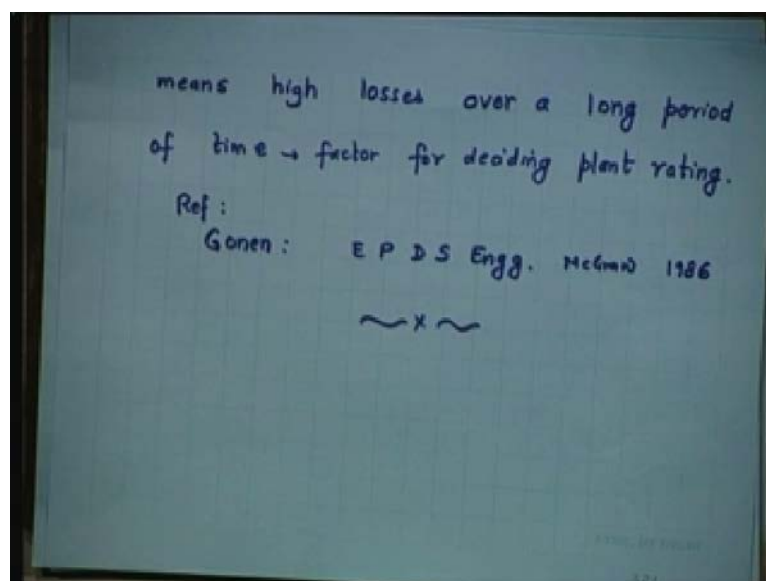 means high losses over a long period
of time → factor for deciding plant rating.
Ref :
Gonen : E P D S Engg. McGraw 1986
~x~